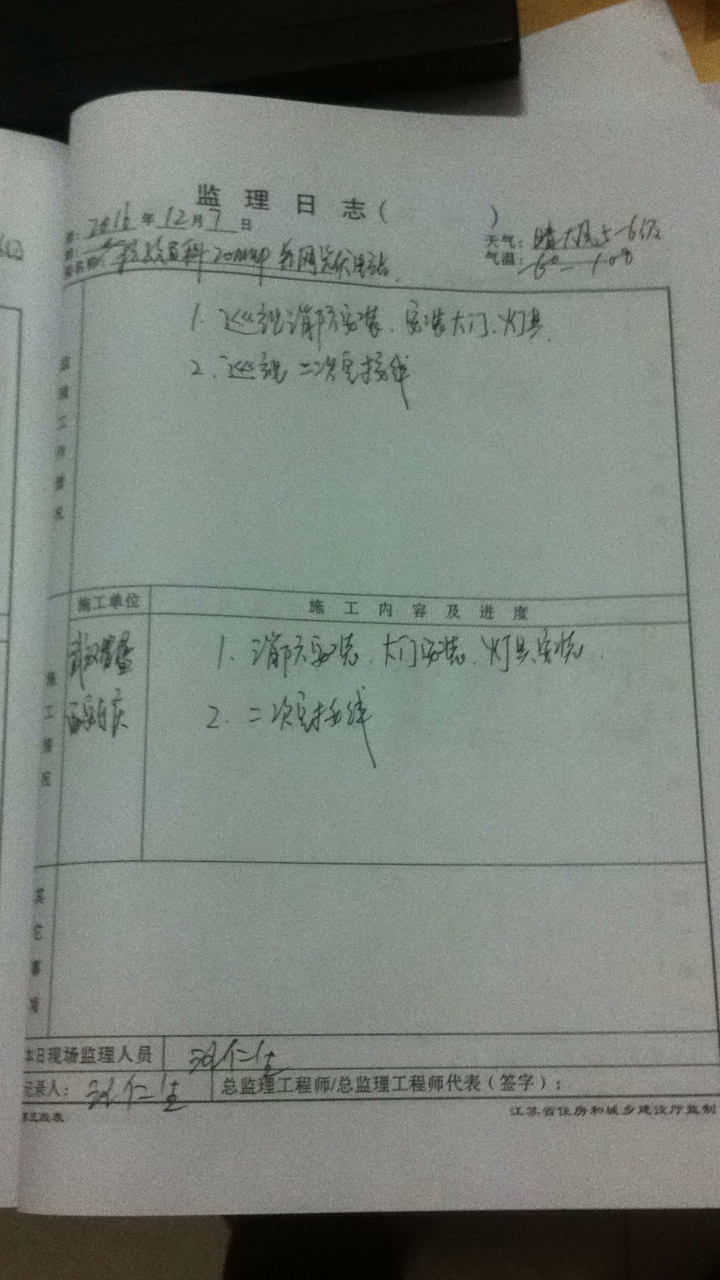 监理日志( )
2016年12月7日
天气：晴大风5-6级
气温：-6°—10°
20MWP 并网光伏电站
监理工作情况
1. 巡视消防安装、安装大门、灯具
2. 巡视二次室接线
施工单位
施工内容及进度
施工情况
1. 消防安装、大门安装、灯具安装.
2. 二次室接线
其它事项
本日现场监理人员
仁生
记录人：
仁生
总监理工程师/总监理工程师代表（签字）：
第五版表
江苏省住房和城乡建设厅监制